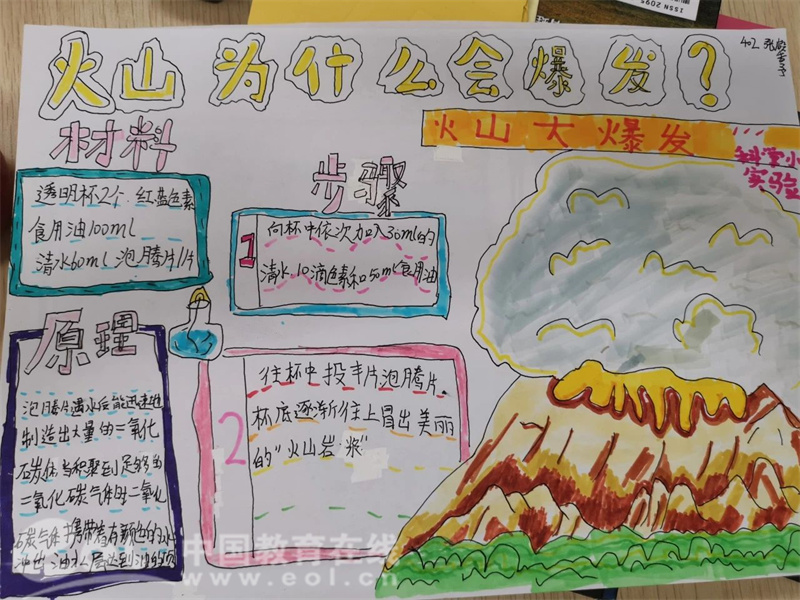 火山为什么会爆发？
402
ISSN 2095
火山大爆发
科学小
实验
材料
透明杯2个、红蓝色素
食用油100ml
清水60ml 泡腾片1片
步骤
1
向杯中依次加入30ml的
清水、10滴色素和50ml食用油
2
往杯中投半片泡腾片,
杯底逐渐往上冒出美丽
的"火山岩浆"
原理
泡腾片遇水后能迅速
制造出大量的二氧化
碳 当积聚到足够的
二氧化碳气体时二氧化
碳气体 携带着有颜色的水
中国教育在线
www.eol.cn